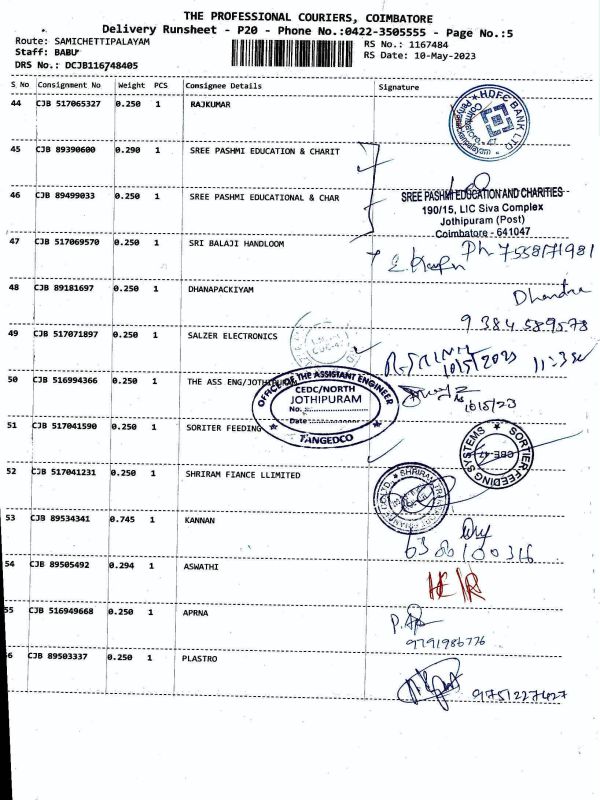 THE PROFESSIONAL COURIERS, COIMBATORE
Delivery Runsheet - P20 - Phone No.:0422-3505555 - Page No.:5
Route: SAMICHETTIPALAYAM
RS No.: 1167484
Staff: BABU
RS Date: 10-May-2023
DRS No.: DCJB116748405
S No Consignment No Weight PCS Consignee Details Signature
44 CJB 517065327 0.250 1 RAJKUMAR
HDFC BANK LTD
45 CJB 89390600 0.290 1 SREE PASHMI EDUCATION & CHARIT
46 CJB 89499033 0.250 1 SREE PASHMI EDUCATIONAL & CHAR
SREE PASHMI EDUCATION AND CHARITIES
190/15, LIC Siva Complex
Jothipuram (Post)
Coimbatore - 641047
47 CJB 517069570 0.250 1 SRI BALAJI HANDLOOM
Ph 7558171981
48 CJB 89181697 0.250 1 DHANAPACKIYAM
9384589578
49 CJB 517071897 0.250 1 SALZER ELECTRONICS
10/5/2023
50 CJB 516994366 0.250 1 THE ASS ENG/JOTHIPURAM
OFFICE OF THE ASSISTANT ENGINEER
CEDC/NORTH
JOTHIPURAM
No.
Date
TANGEDCO
10/5/23
51 CJB 517041590 0.250 1 SORITER FEEDING
SORTIER FEEDING SYSTEMS
CBE-47
52 CJB 517041231 0.250 1 SHRIRAM FIANCE LLIMITED
53 CJB 89534341 0.745 1 KANNAN
54 CJB 89505492 0.294 1 ASWATHI
55 CJB 516949668 0.250 1 APRNA
9791986776
6 CJB 89503337 0.250 1 PLASTRO
9751227427